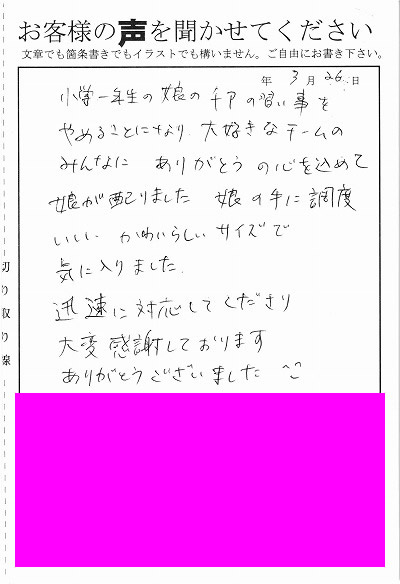 お客様の声を聞かせてください
文章でも箇条書きでもイラストでも構いません。ご自由にお書き下さい。
年 3月 26日
小学一年生の娘のチアの習い事を
やめることになり、大好きなチームの
みんなに ありがとう の心を込めて
娘が配りました 娘の手に調度
いい かわいらしいサイズで
気に入りました。
迅速に対応してくださり
大変感謝しております
ありがとうございました ^^
切り取り線